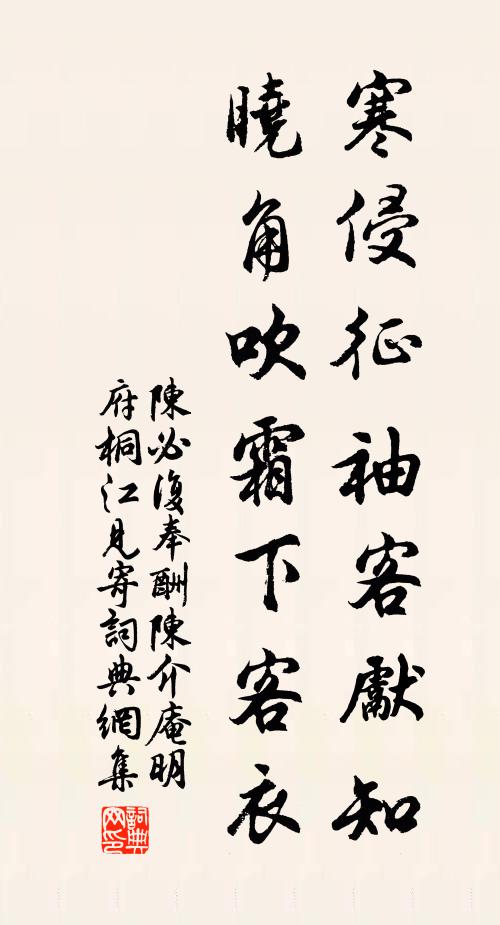 寒侵征袖客獻知
曉角吹霜下客衣
陳必復奉酬陳介庵明
府桐江見寄詞典網集
詞典
网印